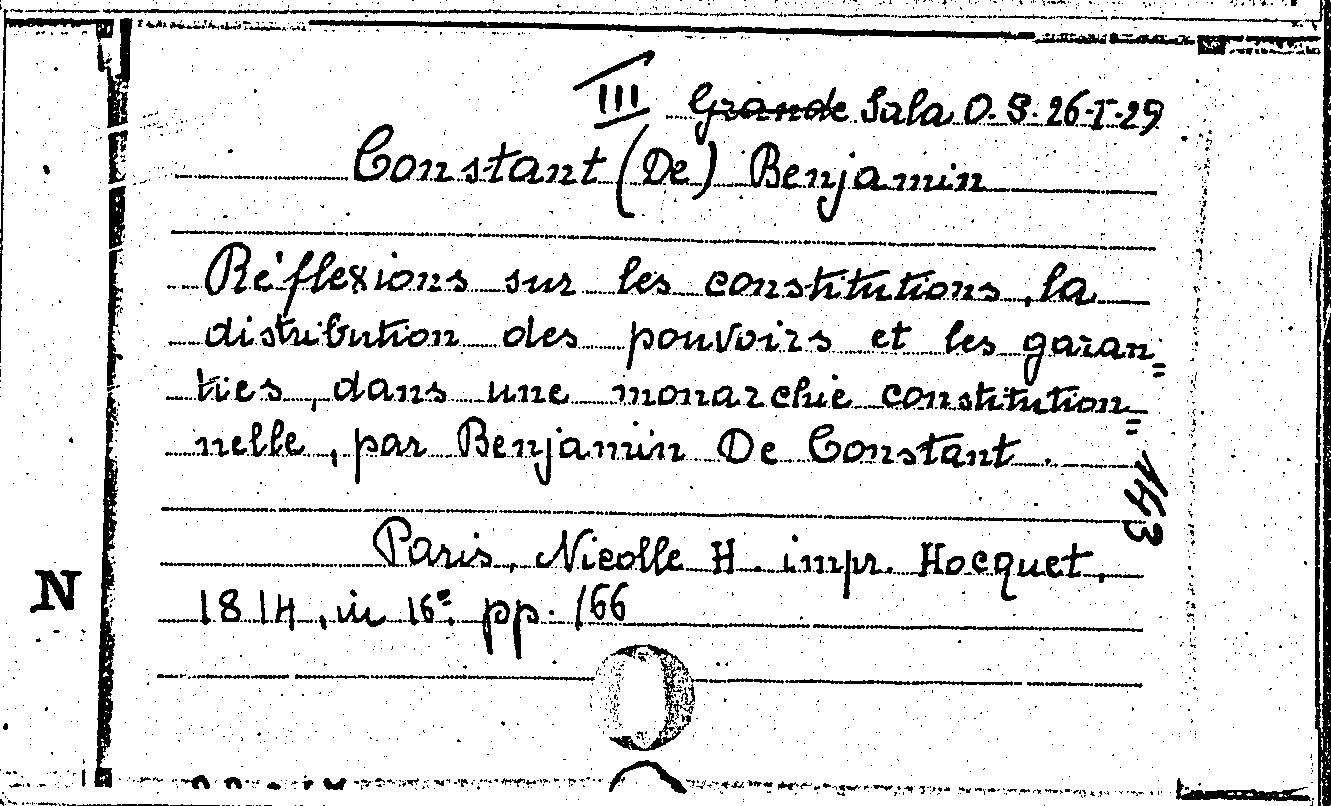 III Grande Sala O. S. 26-I-29
Constant (De) Benjamin
Réflexions sur les constitutions, la
distribution des pouvoirs et les garan=
ties, dans une monarchie constitution=
nelle, par Benjamin De Constant.
143
Paris, Nicolle H. impr. Hocquet,
1814, in 16º. pp. 166
N